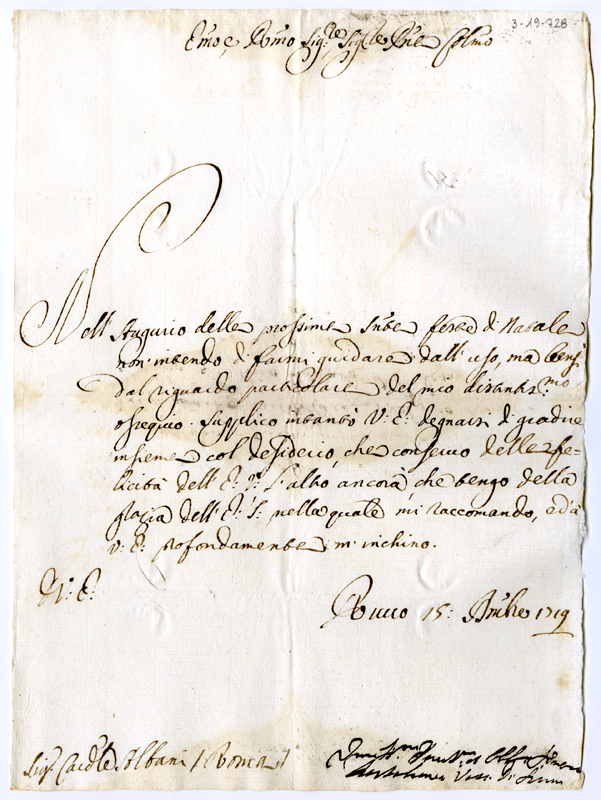 3-19-728
Emo e Rmo Sig.re Sig.re Pne Colmo
Nell'Augurio delle prossime Sante feste di Natale
non intendo di farmi guidare dall'uso, ma bensì
dal riguardo particolare del mio divotis.mo
ossequio. Supplico intanto V: E: degnarsi di gradire
insieme col desiderio, che conservo delle fe-
licità dell'E: V: l'altro ancora, che tengo della
grazia dell'E: S: nella quale mi raccomando, ed à
V: E: profondamente m'inchino.
Di V: E:
15: Xmbre 1719
Sig.r Card.le Albani / Roma /